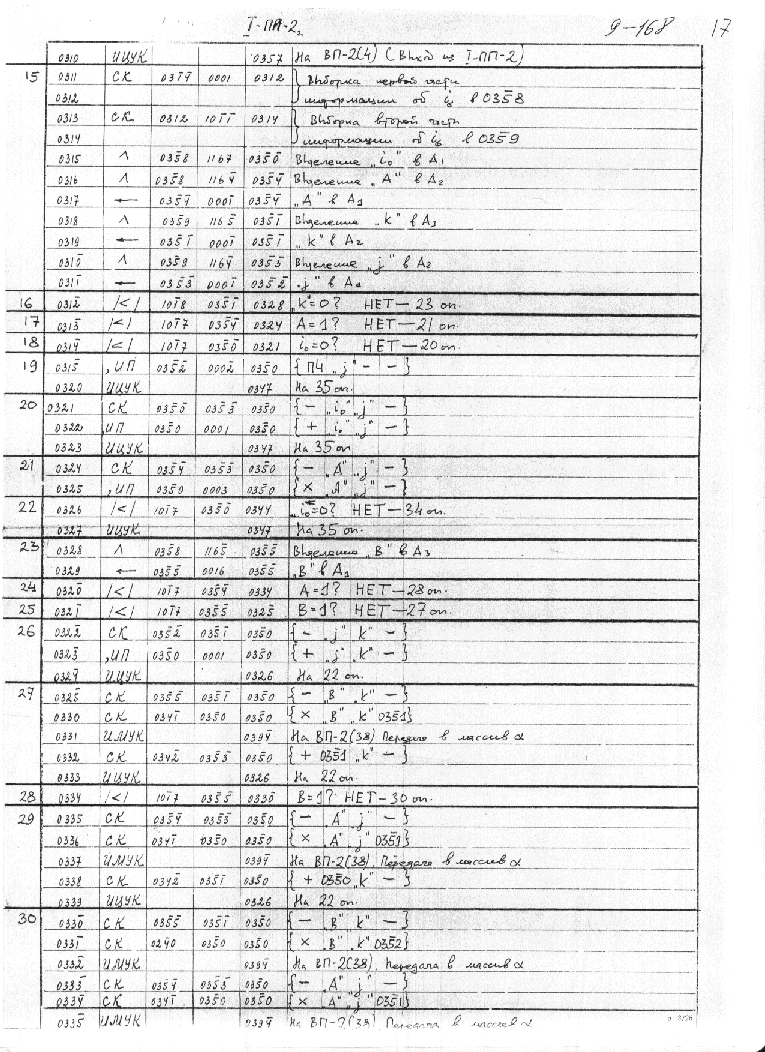 I-ПП-2 9-168 17
0310 ИЦУК 0357 На ВП-2(4) (Выход из I-ПП-2)
15 0311 СК 0314̄ 0001 0312 Выборка первой части
0312 информации об i₃ в 035̄8
0313 СК 0312 101̄1̄ 0314 Выборка второй части
0314 информации об i₃ в 035̄9
0315 Λ 035̄8 1167 035̄0̄ Выделение „i₀" в А₁
0316 Λ 035̄8 1164̄ 035̄4̄ Выделение „А" в А₂
0317 ← 035̄4̄ 0001̄ 035̄4̄ „А" в А₁
0318 Λ 035̄9 1165 035̄1̄ Выделение „k" в А₃
0319 ← 035̄1̄ 0001̄ 035̄1̄ „k" в А₂
0310̄ Λ 035̄9 1164̄ 035̄3̄ Выделение „j" в А₂
0311̄ ← 035̄3̄ 0001̄ 035̄2̄ „j" в А₁
16 0312̄ /</ 101̄8 035̄1̄ 0328 „k"=0? НЕТ—23 оп.
17 0313̄ /</ 101̄7 035̄4̄ 0324 А=1? НЕТ—21 оп.
18 0314̄ /</ 101̄7 035̄0̄ 0321 i₀=0? НЕТ—20 оп.
19 0315̄ ,ИП 035̄2̄ 0002 035̄0 { ПЧ „j" – – }
0320 ИЦУК 0347 На 35 оп.
20 0321 СК 035̄0̄ 035̄3̄ 035̄0 { – „i₀" „j" – }
0322 ИП 035̄0 0001 035̄0 { + „i₀" „j" – }
0323 ИЦУК 0347 На 35 оп
21 0324 СК 035̄4̄ 035̄3̄ 035̄0 { – „А" „j" – }
0325 ,ИП 035̄0 0003 035̄0 { × „А" „j" – }
22 0326 /</ 101̄7 035̄0̄ 0344 „i₀"=0? НЕТ—34 оп.
0327 ИЦУК 0347 На 35 оп.
23 0328 Λ 035̄8 1165 035̄5̄ Выделение „В" в А₃
0329 ← 035̄5̄ 0016 035̄5̄ „В" в А₁
24 0320̄ /</ 101̄7 035̄4̄ 0334 А=1? НЕТ—28 оп.
25 0321̄ /</ 101̄7 035̄5̄ 0325̄ В=1? НЕТ—27 оп.
26 0322̄ СК 035̄2̄ 035̄1̄ 035̄0 { – „j" „k" – }
0323̄ ,ИП 035̄0 0001 035̄0 { + „j" „k" – }
0324̄ ИЦУК 0326 На 22 оп.
27 0325̄ СК 035̄5̄ 035̄1̄ 035̄0 { – „В" „k" – }
0330 СК 034̄1̄ 035̄0 035̄0 { × „В" „k" 035̄1}
0331 ИМУК 0394̄ На ВП-2(38) Передача в массив α
0332 СК 0342̄ 035̄3̄ 035̄0 { + 035̄1 „k" – }
0333 ИЦУК 0326 На 22 оп.
28 0334 /</ 101̄7 035̄5̄ 0330̄ В=1? НЕТ–30 оп.
29 0335 СК 035̄4̄ 035̄3̄ 035̄0 { – „А" „j" – }
0336 СК 0341̄ 035̄0 035̄0 { × „А" „j" 035̄1}
0337 ИМУК 0394̄ На ВП-2(38). Передача в массив α
0338 СК 0342̄ 035̄1̄ 035̄0 { + 035̄0 „k" – }
0339 ИЦУК 0326 На 22 оп.
30 0330̄ СК 035̄5̄ 035̄1̄ 035̄0 { – „В" „k" – }
0331̄ СК 0240 035̄0 035̄0 { × „В" „k" 035̄2}
0332̄ ИМУК 0394̄ На ВП-2(38). Передача в массив α
0333̄ СК 035̄4̄ 035̄3̄ 035̄0 { – „А" „j" – }
0334̄ СК 034̄1̄ 035̄0 035̄0 { × „А" „j" 035̄1}
0335̄ ИМУК 0394̄ На ВП-2(38). Передача в массив α